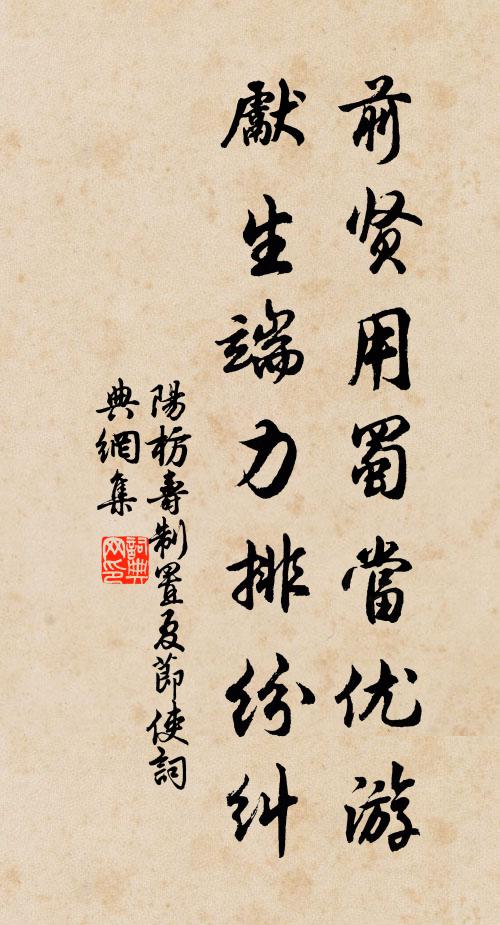 前贤用蜀當优游
獻生端力排纷纠
陽枋壽制置夏節使詞
典網集
詞典網印